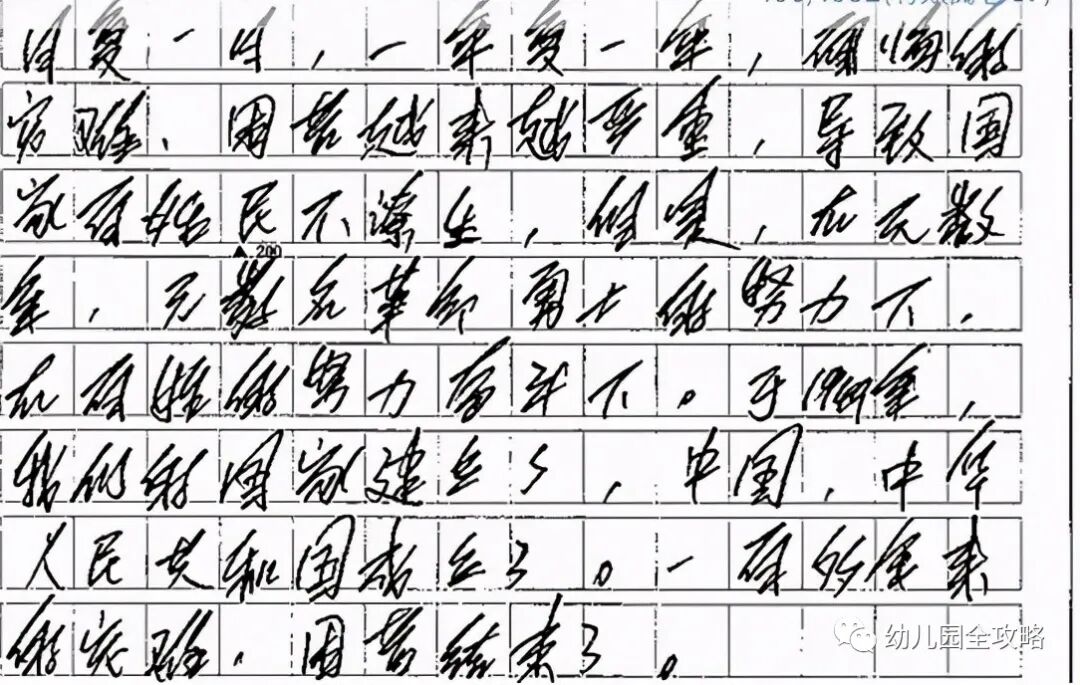 日复一日，一年复一年，
灾难、困苦越来越严重，导致国
家百姓民不潦生，但是，在无数
年，无数名革命勇士的努力下，
200
在百姓的努力奋斗下。于1949年，
我们的国家建立了，中国，中华
人民共和国成立了。一百多年来
的灾难，困苦结束了。
幼儿园全攻略